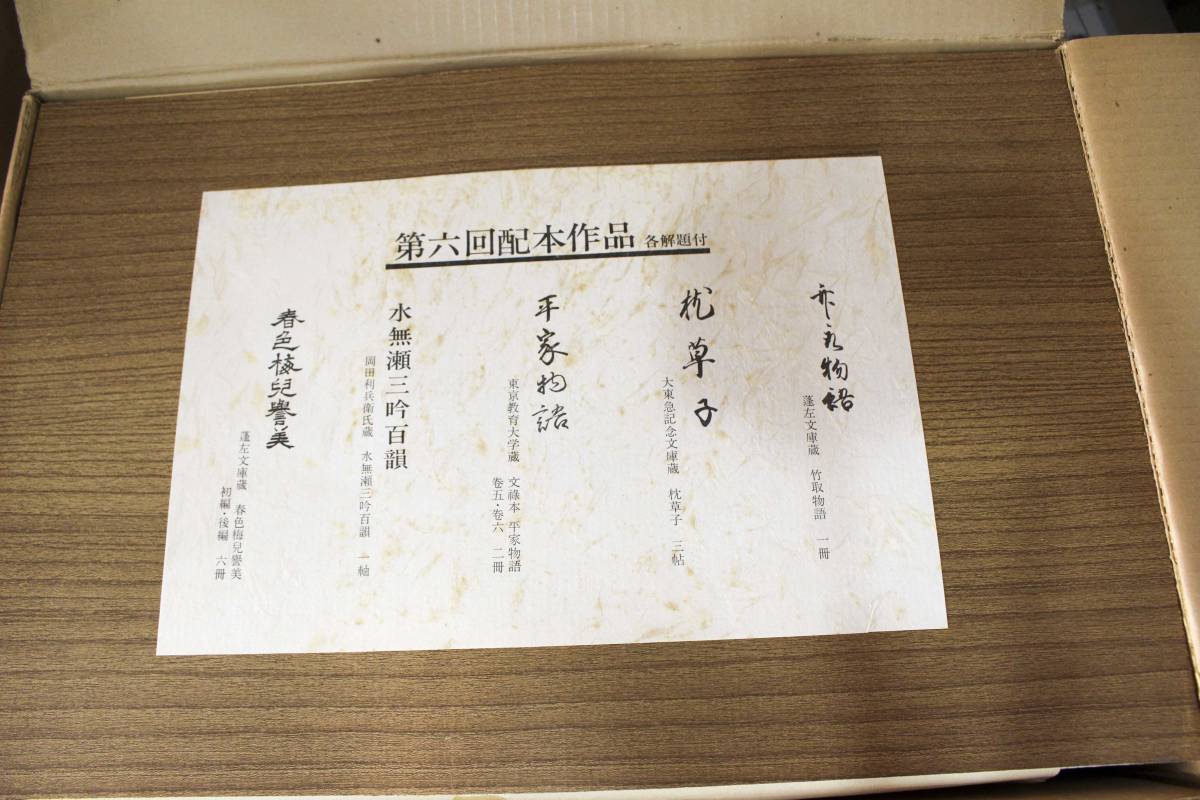 第六回配本作品 各解題付
竹取物語
蓬左文庫蔵 竹取物語 一冊
枕草子
大東急記念文庫蔵 枕草子 三帖
平家物語
東京教育大学蔵 文祿本 平家物語
卷五・卷六 二冊
水無瀬三吟百韻
岡田利兵衛氏蔵 水無瀬三吟百韻 一軸
春色梅兒譽美
蓬左文庫蔵 春色梅兒譽美
初編・後編 六冊